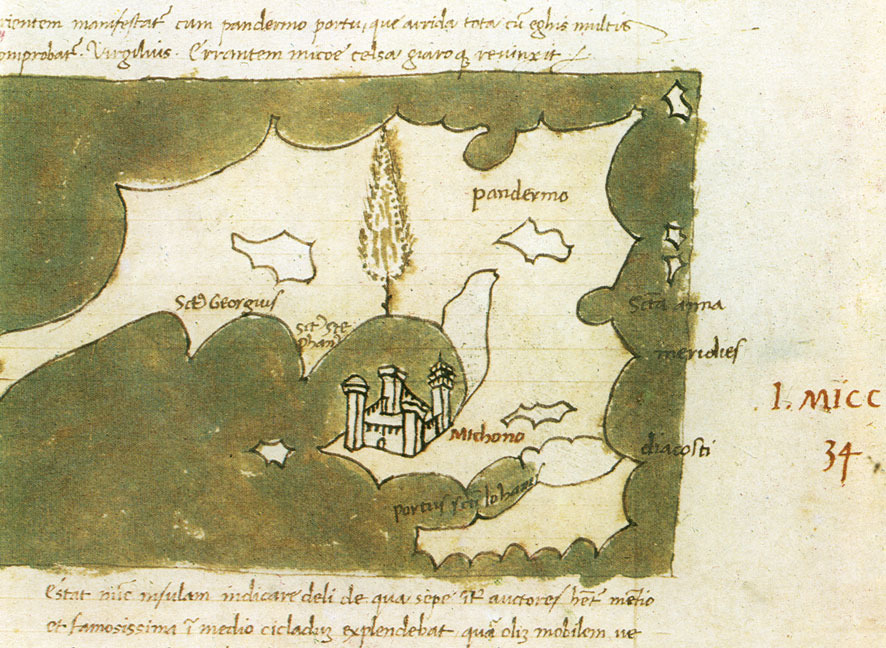 rientem manifestat cum pandermo portu, que arrida tota cū eghis multis
omprobat. Virgilius. Errantem micoe celsa giaroq; revinxit
pandermo
Sct9 Georgius
Sct9 Ste
phan9
Scta anna
meridies
Michono
diacosti
portus sctī Iohanis
I. MICC
34
estat nūc insulam indicare deli de qua sepe
et famosissima ī medio cicladum explendebat quā olim mobilem ve